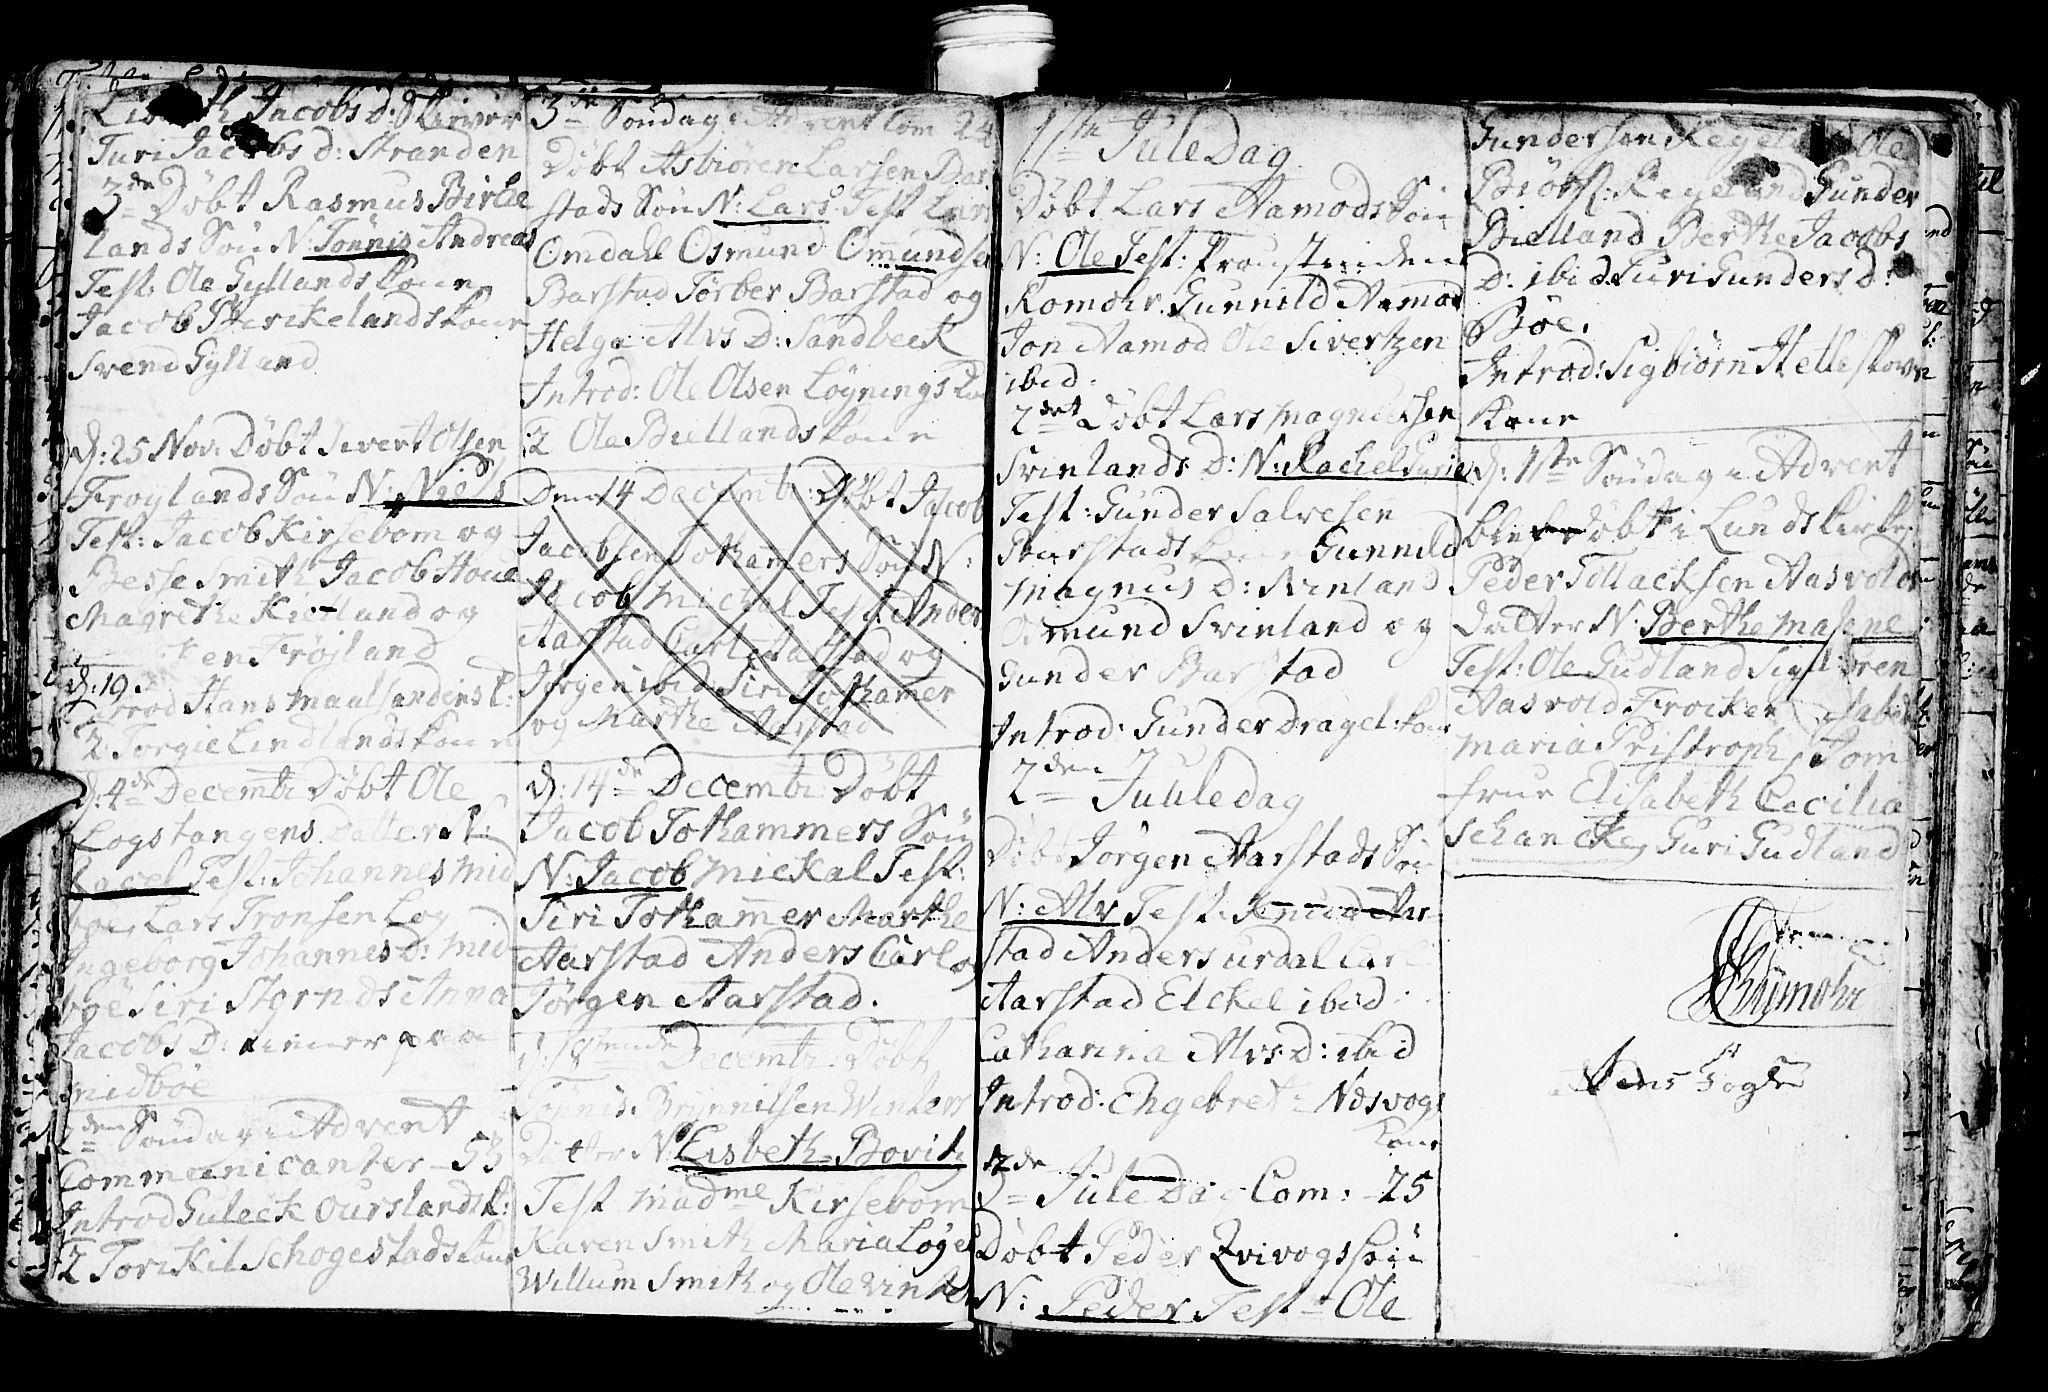 Jacobs D: Skiever
Turi Jacobs D: Stranden
3de Døbt Rasmus Birke
lands Søn N: Tønnis Andreas
Test: Ole Gyllands kone
Jacob Birkelands kone
Svend Gylland
d: 25 Nov: Døbt Sivert Olsen
Frøylands Søn N: Niels
Test: Jacob Kirsebom og
Besse Smith Jacob Houe
Magrethe Kierland og
en Frøjland
d: 19
Introd Hans Maalsandens k:
2 Torgie Lindlands kone
d: 4de Decembr Døbt Ole
Logstangens Datter N:
Rachel Test: Johannes Mid
bøe, Lars Tronsen Log
Ingeborg Johannes D: Mid
bøe Siri Anna
Jacobs D: tiener paa
Midbøe
2den Søndag i Advent
Communicanter 53
Introd Guleck Ourslands k:
2 Torkil Schogestads kone
3de Søndag i Advent Com 24
Døbt Asbiøren Larsen Bar
stads Søn N: Lars Test Lars
Omdall Osmund Omundsen
Barstad Tørber Barstad og
Helge Alvs D: Sandbeck
Introd: Ole Olsen Løynings ko
2 Ole Bullands kone
Den 14 Decembr: Døbt Jacob
Jacobsen Tothamers Søn N:
Jacob Michel Test. Anders
Aarstad Carl Aarstad og
Jørgen ibid Siri Tothamer
og Marthe Aarstad
d: 14de Decembr Døbt
Jacob Tothammers Søn
N: Jacob Mickal Test:
Siri Tothammer Marthe
Aarstad Anders Carl og
Jørgen Aarstad.
Decembr: Døbt
Tønnis Brynnilsen Winters
Datter N: Lisbeth Bovitz
Test Madme Kirsebom
Karen Smith Maria
Willum Smith og Ole Vinter
1ste Jule Dag
Døbt Lars Aamods Søn
N: Ole Test: Proustinden
Gunnild Aamod
Jon Aamod Ole Sivertzen
ibid.
2det Døbt Lars Magnusen
Svinlands D: N: Rachel Gurie
Test: Gunder Salvesen
Barstads kone Gunnild
Magnus D: Svinland
Osmund Svinland og
Gunder Barstad
Introd: Gunder Dragel: kone
2den Juule dag
Døbt Jørgen Aarstads Søn
N: Alv Test: Knud Aar
stad Anders urdal Carl
Aarstad Elckel ibid
Catharina Alvs D: ibid
Introd: Engebret Nesvogs
kone
3de Jule Dag Com: 25
Døbt Peder Rvivogs søn
N: Peder Test Ole
Gundersen Regeland Ole
Regeland Gunder
Bielland Berthe Jacobs
D: ibid Guri Gunders D:
Bøe.
Introd: Sigbiørn
kone
d: 1ste Søndag i Advent
blef døbt i Lunds kirke
Peder Tollacksen Aasvolds
datter N: Berthe Malene
Test: Ole Gudland
Aasvold Frøcken
Maria Pristroph, Jom
frue Elisabeth Cecilia
Schancke, Guri Gudland